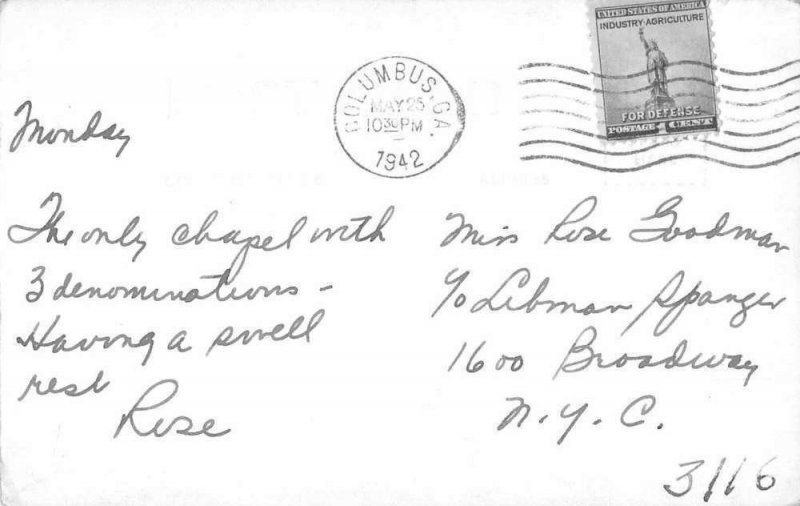 UNITED STATES OF AMERICA
INDUSTRY-AGRICULTURE
FOR DEFENSE
POSTAGE 1 CENT
COLUMBUS, GA.
MAY 25
10 30 PM
1942
Monday
The only chapel with
3 denominations -
Having a swell
rest
Rose
Miss Rose Goodman
c/o Libman Spanger
1600 Broadway
N.Y.C.
3116